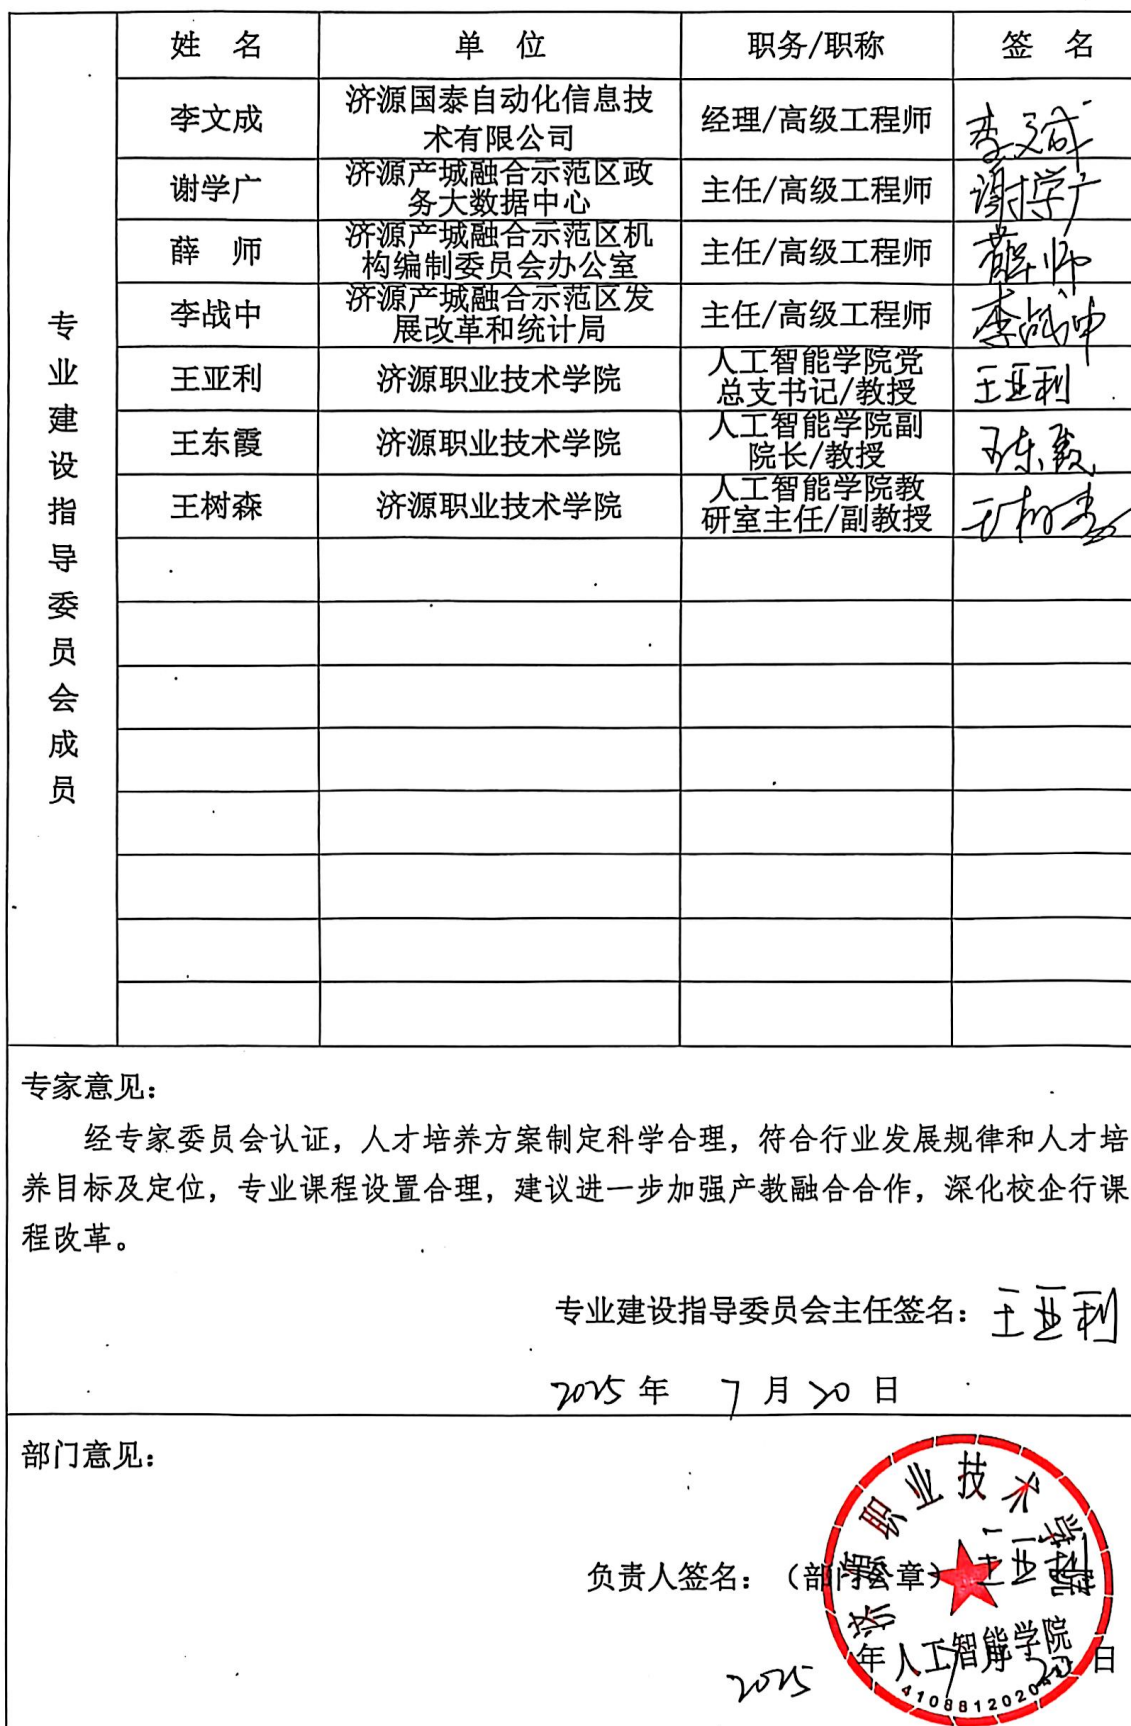 姓 名 单 位 职务/职称 签 名
李文成 济源国泰自动化信息技术有限公司 经理/高级工程师 李文成
谢学广 济源产城融合示范区政务大数据中心 主任/高级工程师 谢学广
薛 师 济源产城融合示范区机构编制委员会办公室 主任/高级工程师 薛师
李战中 济源产城融合示范区发展改革和统计局 主任/高级工程师 李战中
王亚利 济源职业技术学院 人工智能学院党总支书记/教授 王亚利
王东霞 济源职业技术学院 人工智能学院副院长/教授 王东霞
王树森 济源职业技术学院 人工智能学院教研室主任/副教授 王树森
专业建设指导委员会成员
专家意见：
经专家委员会认证，人才培养方案制定科学合理，符合行业发展规律和人才培
养目标及定位，专业课程设置合理，建议进一步加强产教融合合作，深化校企行课
程改革。
专业建设指导委员会主任签名：王亚利
2025 年 7 月 20 日
部门意见：
负责人签名：（部门公章）王亚利
2025 年 7 月 20 日
济源职业技术学院
人工智能学院